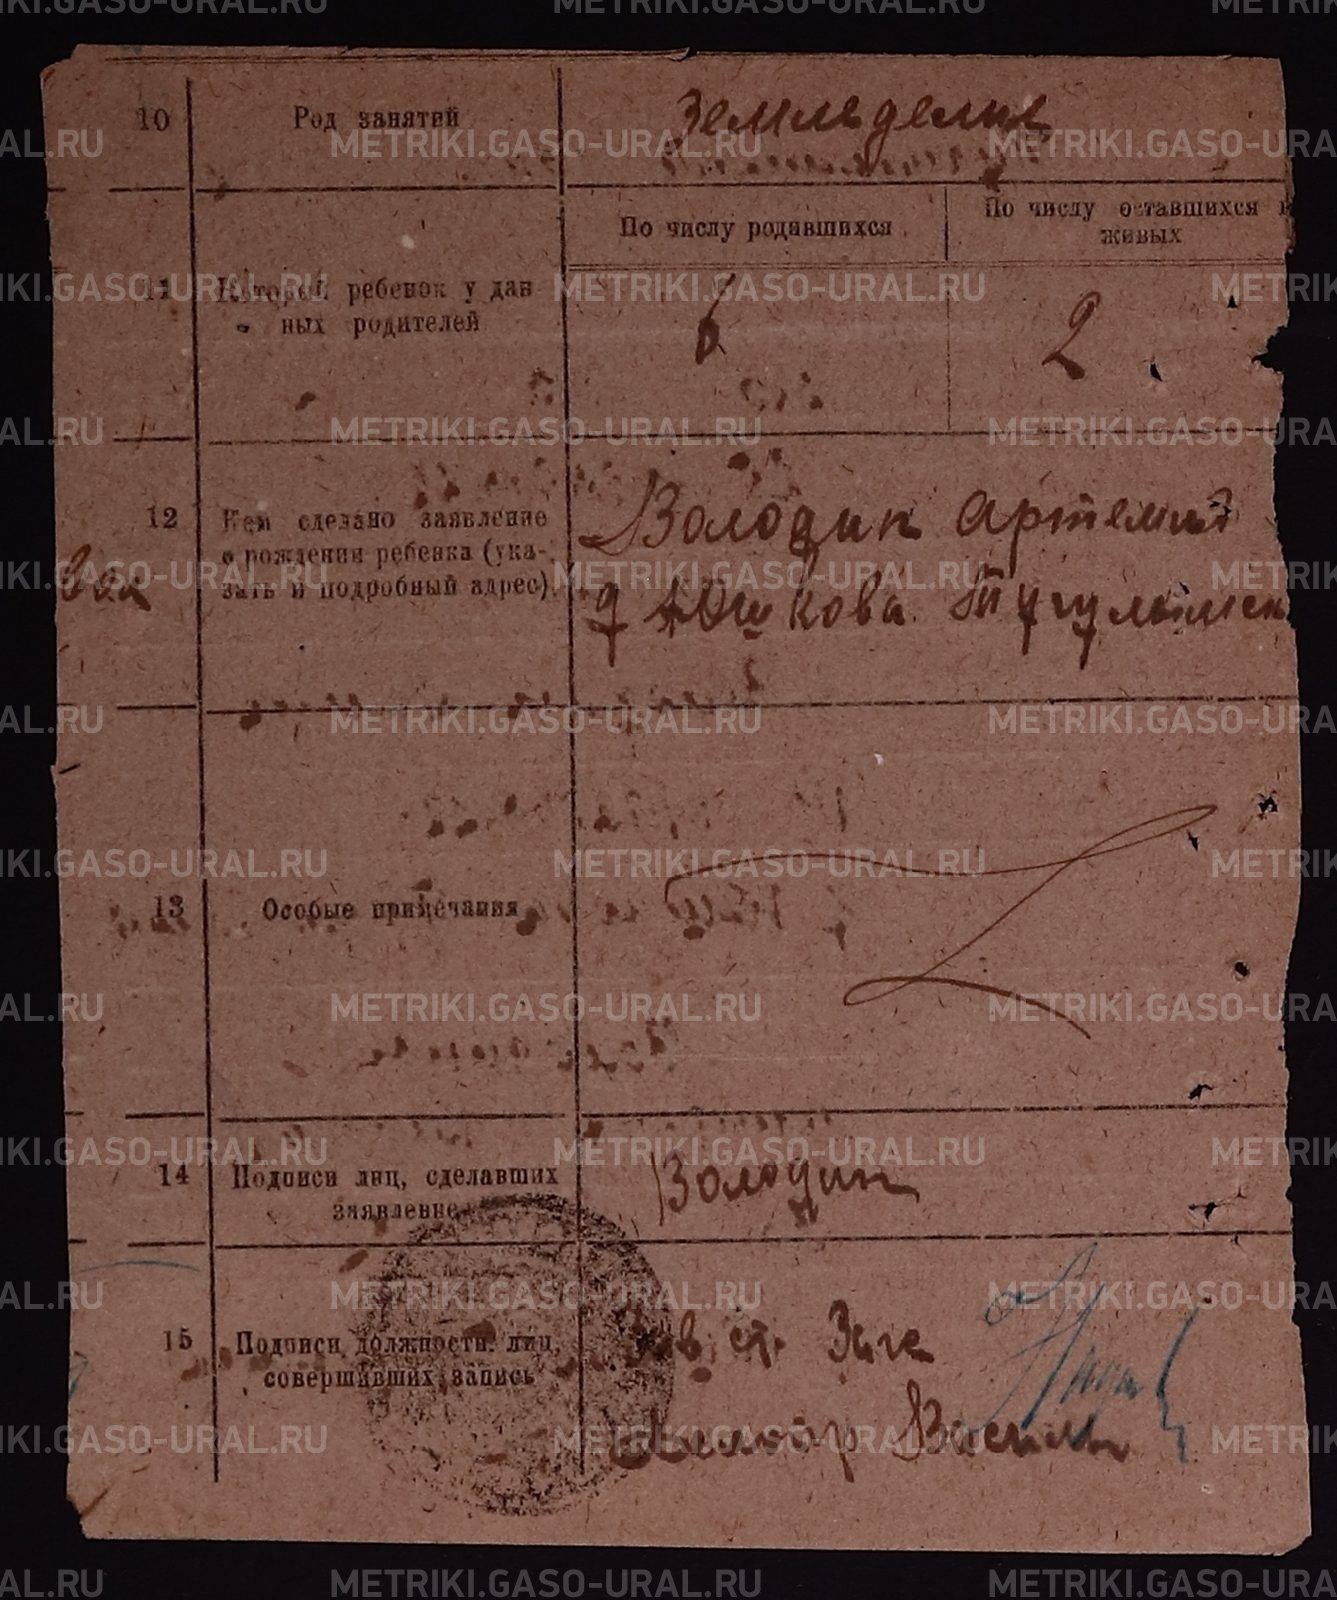 10 Род занятий Земльделия
По числу родившихся По числу оставшихся в
живых
11 Которой ребенок у дан
ных родителей
6 2
12 Кем сделано заявление
о рождении ребенка (ука-
зать и подробный адрес)
Володин Артемий
д Юшкова. Тугулымск
13 Особые примечания
14 Подписи лиц, сделавших
заявление
Володин
15 Подписи должностн. лиц,
совершивших запись
Зав ст. Загс
Василь
METRIKI.GASO-URAL.RU